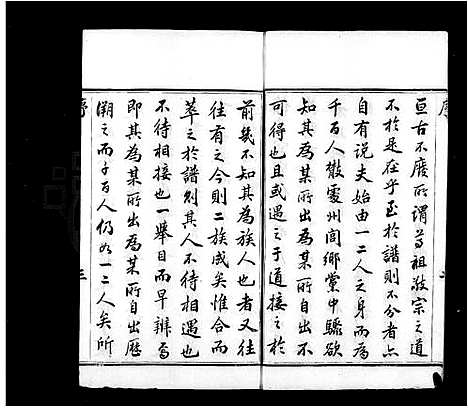 序
亘古不廢所謂尊祖敬宗之道
不於是在乎至於譜則不分者亦
自有說夫始由一二人之身而爲
千百人散處州閭鄉黨中驟欲
知其爲某所出爲某所自出不
可得也且或遇之于道接之於
前幾不知其爲族人也者又往
往有之今則二族成矣惟合而
萃之於譜則其人不待相遇也
不待相接也一舉目而早辨焉
即其爲某所出爲某所自出歷
溯之而千百人仍如一二人矣所
序
三